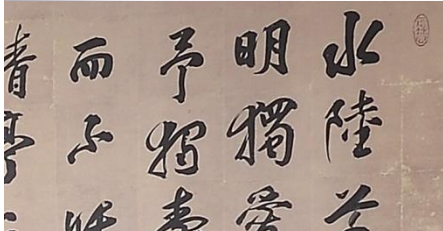 水陸草
明獨愛
予獨愛
而不
清亭